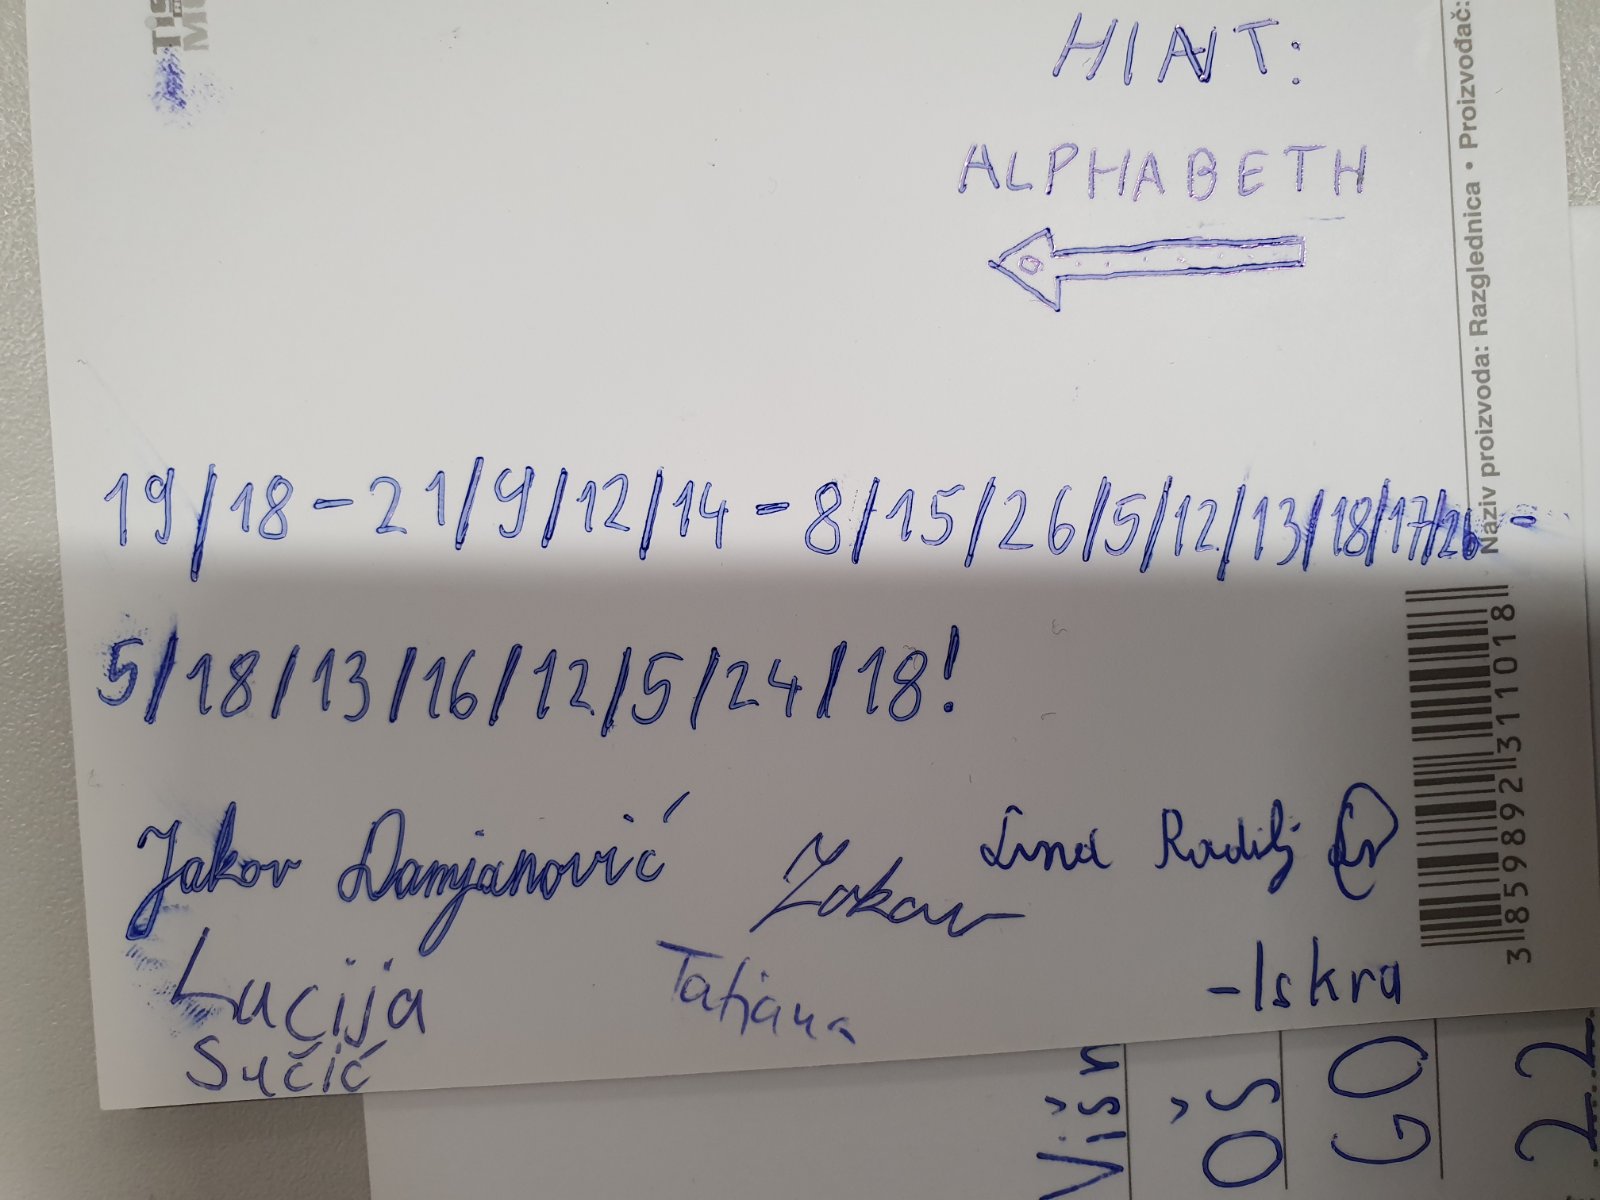 HINT:
ALPHABETH
19/18-21/9/12/14-8/15/26/5/12/13/18/17/26-
5/18/13/16/12/5/24/18!
Jakov Damjanović
Lina Radilj
Lucija
Sučić
Tatjana
-Iskra
Naziv proizvoda: Razglednica • Proizvođač:
3 859892 311018
Tis
Višn
OŠ
GO
22